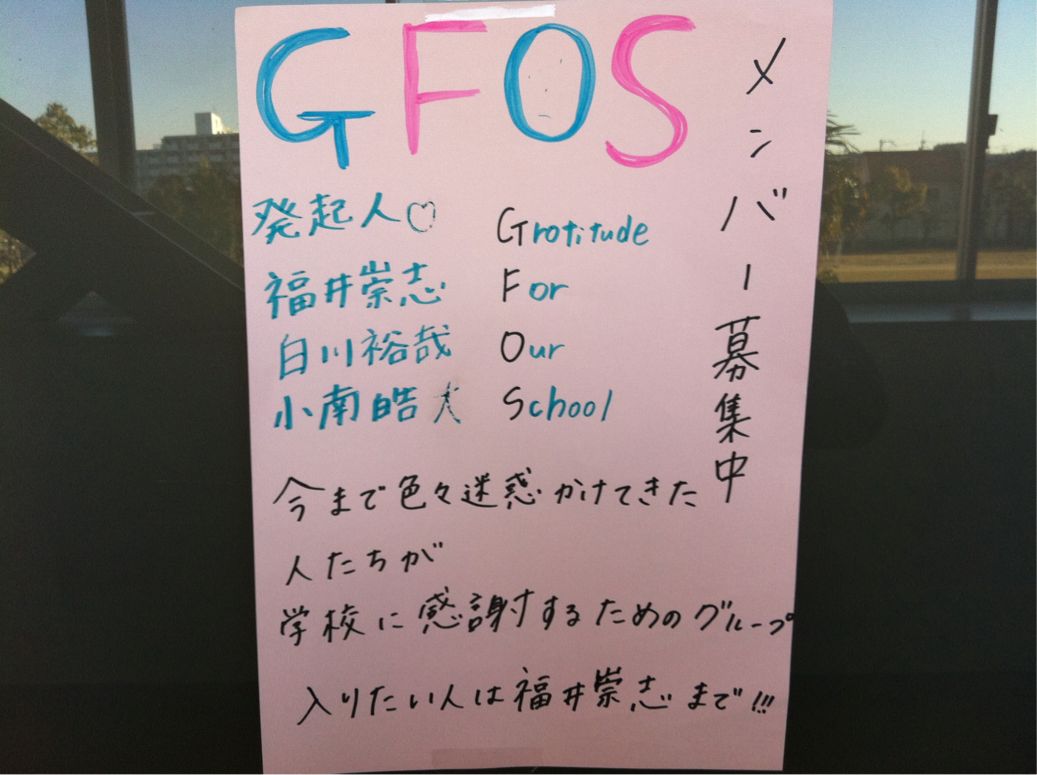 GFOS
メンバー募集中
発起人♡
福井崇志
白川裕哉
小南皓大
Grotitude
For
Our
School
今まで色々迷惑かけてきた
人たちが
学校に感謝するためのグループ
入りたい人は福井崇志まで!!!